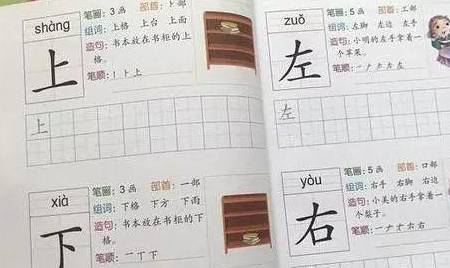 shàng
上
笔画：3 画 部首：卜部
组词：上格 上台 上面
造句：书本放在书柜的上
格。
笔顺：丨 ⺊ 上
上
xià
下
笔画：3 画 部首：一部
组词：下格 下方 下雨
造句：书本放在书柜的下
格。
笔顺：一 丅 下
zuǒ
左
笔画：5 画 部首：工部
组词：左脚 左边 左手
造句：小明的左手拿着一
个苹果。
笔顺：一 ナ 𠂇 左 左
左
yòu
右
笔画：5 画 部首：口部
组词：右手 右脚 右边
造句：小美的右手拿着一
个梨子。
笔顺：一 ナ 右 右